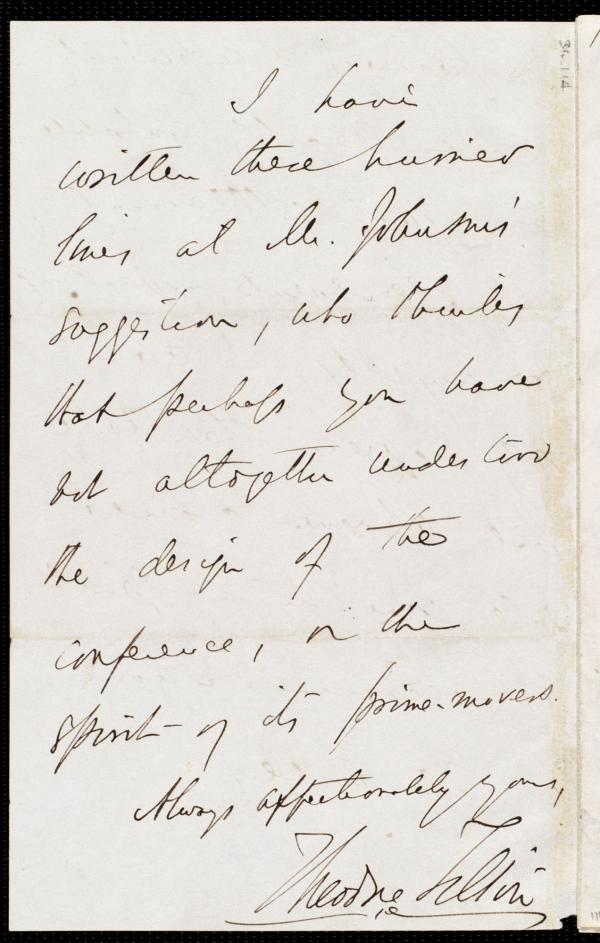 I have
written these hurried
lines at Mr. Johnson's
suggestion, who thinks
that perhaps you have
not altogether understood
the design of the
conference, or the
spirit of its prime-movers.
Always affectionately yours,
Theodore Tilton